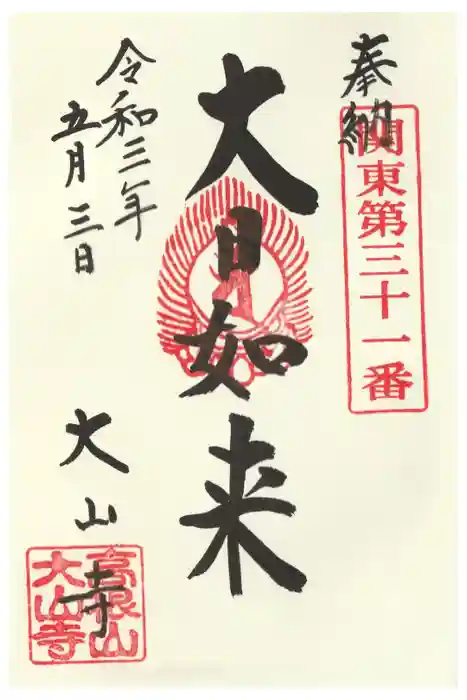 奉納
関東第三十一番
大日如来
令和三年
五月三日
大山寺
高根山
大山寺